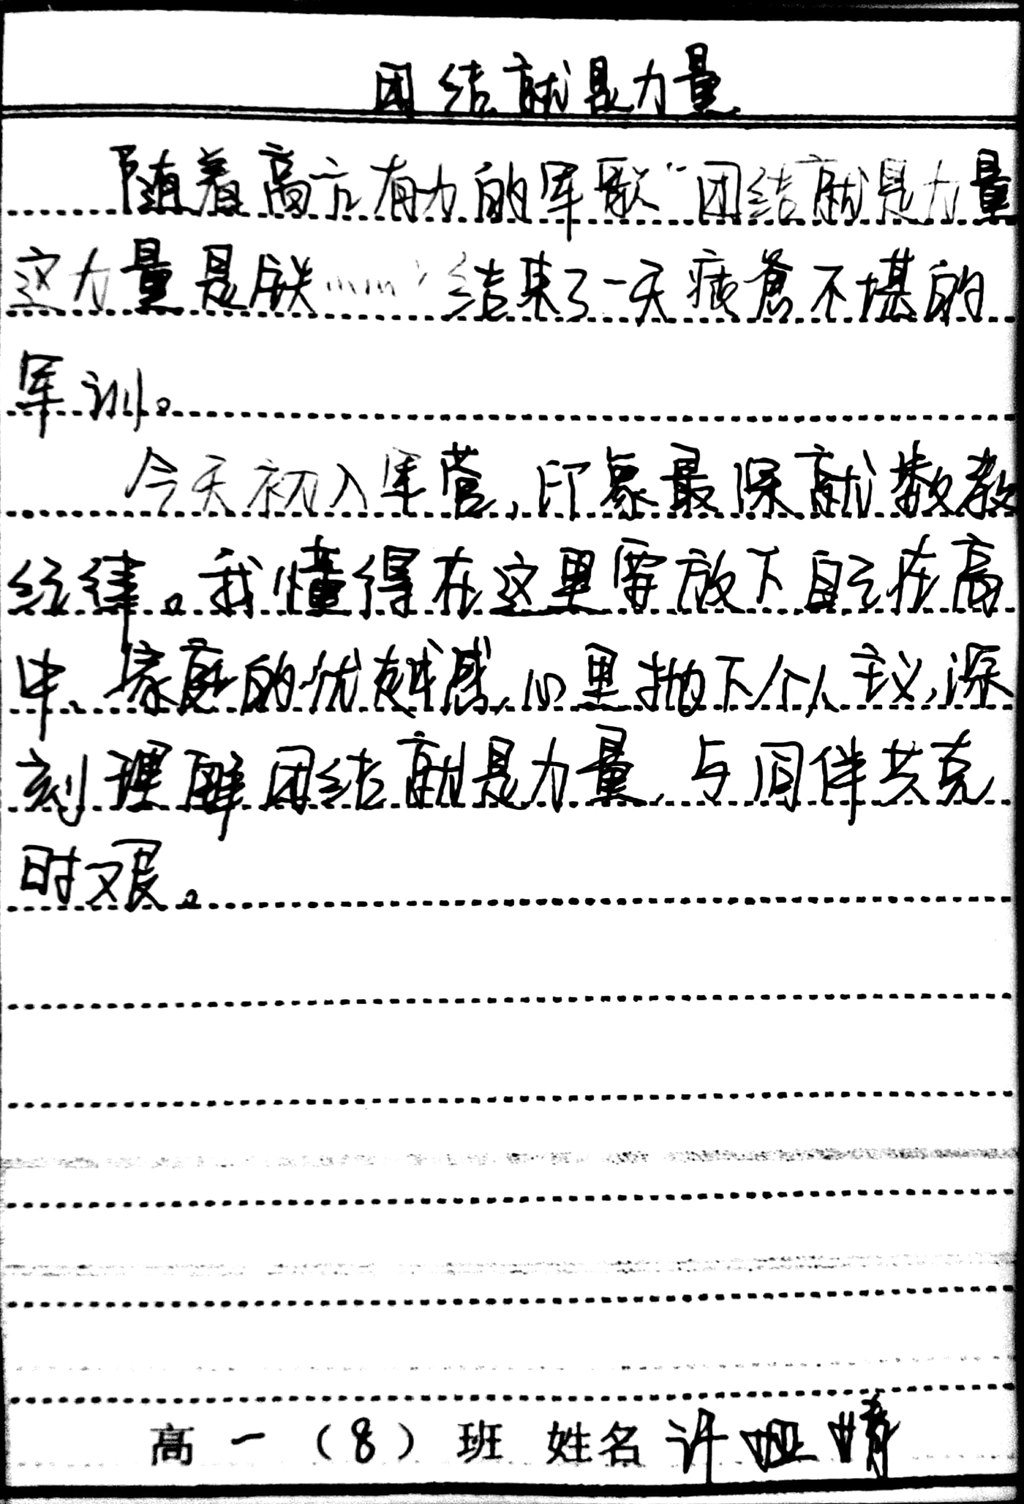 团结就是力量
随着高亢有力的军歌“团结就是力量
这力量是铁……”结束了一天疲惫不堪的
军训。
今天初入军营,印象最深就数教
纪律。我懂得在这里要放下自己在高
中、家庭的优越感,心里抛下个人主义,深
刻理解团结就是力量,与同伴共克
时艰。
高一(8)班 姓名许娅婧